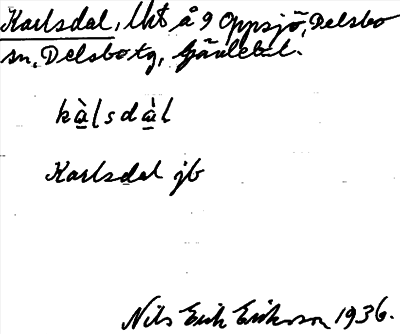 Karlsdal, lht å 9 Oppsjö, Delsbo
sn, Delsbo tg, Gävlebl.
kàlsdàl
Karlsdal jb
Nils Erik Eriksson 1936.